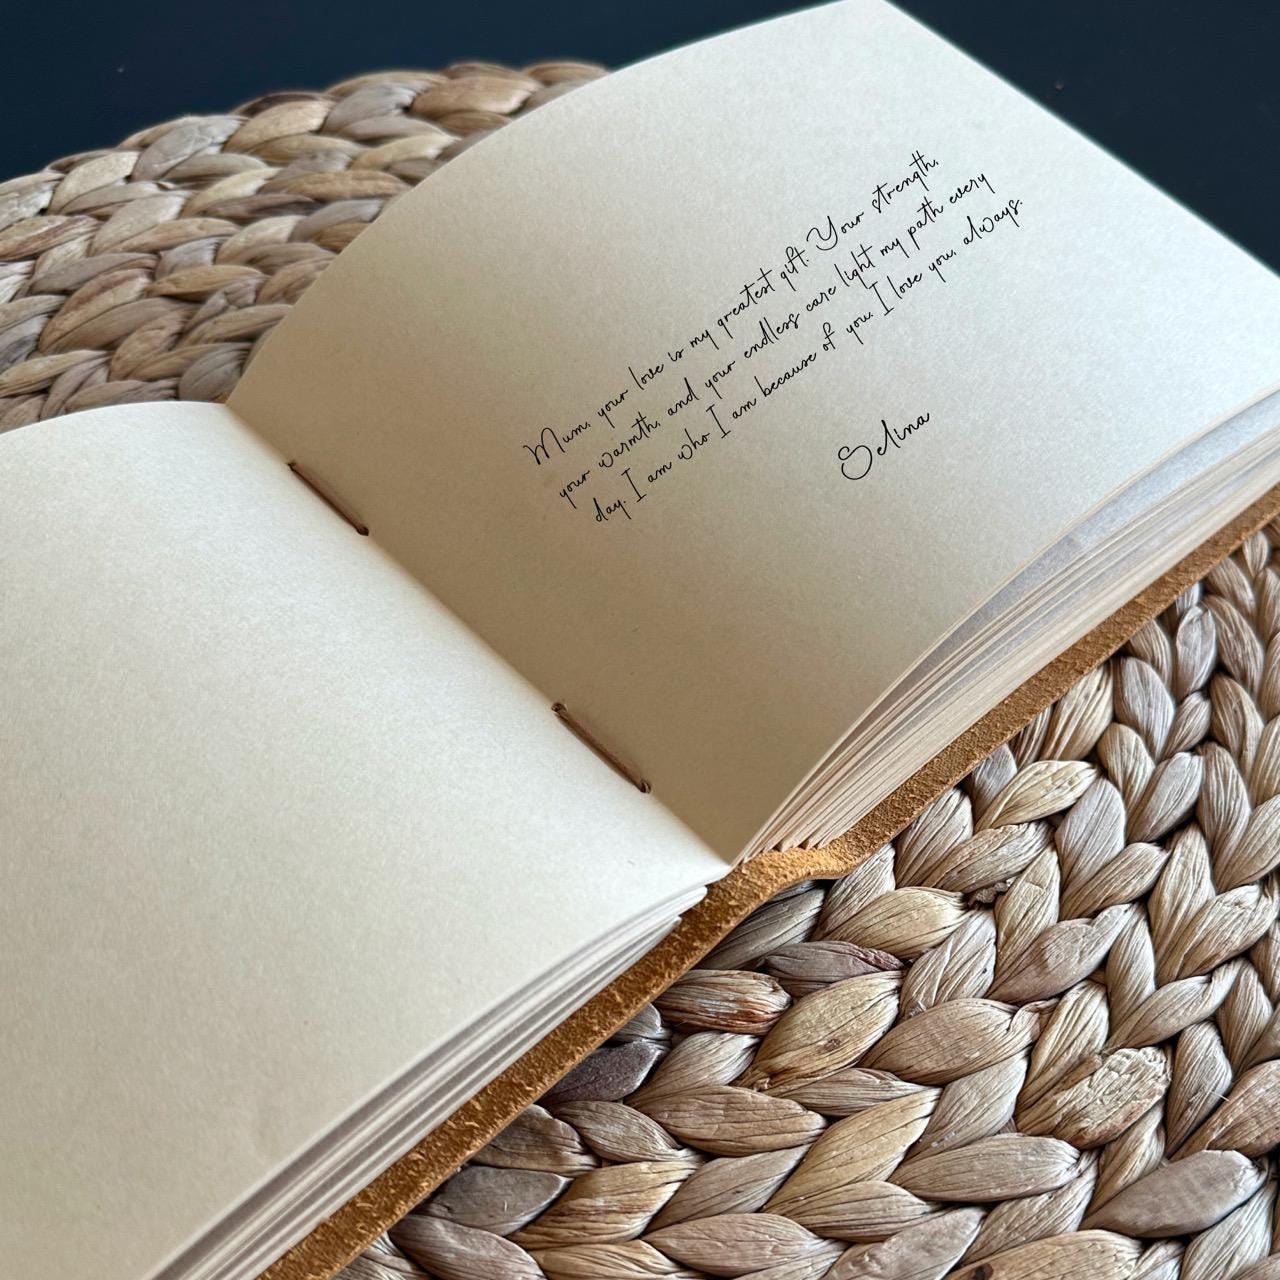 Mum, your love is my greatest gift. Your strength,
your warmth, and your endless care light my path every
day. I am who I am because of you. I love you, always.
Selina